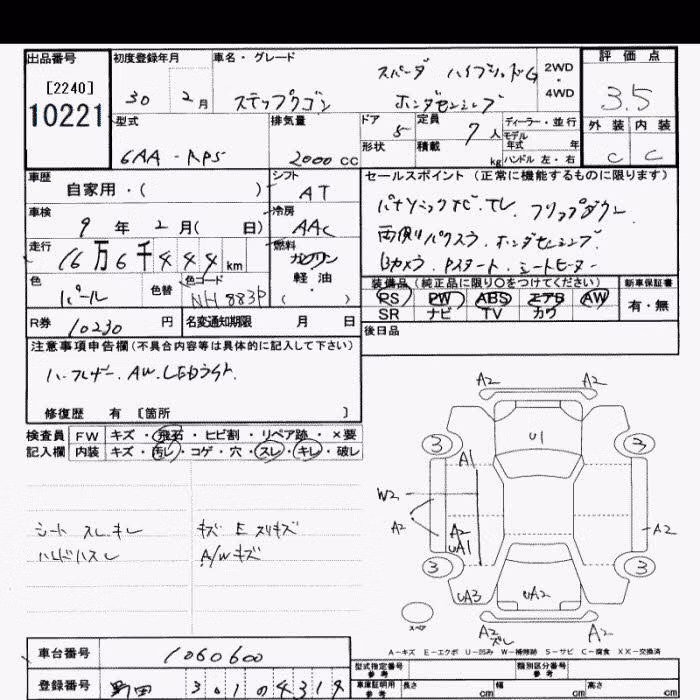 出品番号 初度登録年月 車名・グレード 評価点
[2240] 10221 30 2月 ステップワゴン スパーダ ハイブリッドG ホンダセンシング 2WD・4WD 3.5
型式 排気量 ドア 定員 ディーラー・並行 外装 内装
6AA-RP5 2000cc 5 7人 モデル年式 年 C C
形状 積載 kg ハンドル 左・右
車歴 シフト セールスポイント (正常に機能するものに限ります)
自家用・( ) AT パナソニックナビ. TV. フリップダウン
車検 冷房
9年2月( 日) AAC 両側パワスラ. ホンダセンシング
走行 燃料
16万6千444km ガソリン Bカメラ Pスタート. シートヒーター
色 色替 色コード 軽油・ 装備品 (純正品に限り○をつけてください) 新車保証書
パール NH883P ( ) PS PW ABS エアB AW 有・無
R券 10230円 名変通知期限 月 日 SR ナビ TV カワ
後日品
注意事項申告欄(不具合内容等は具体的に記入して下さい)
ハーフレザー. AW. LEDライト.
修復歴 有 [箇所 ]
検査員 FW キズ・飛石・ヒビ割・リペア跡・×要
記入欄 内装 キズ・汚レ・コゲ・穴・スレ・キレ・破レ
シート スレ キレ キズ E スリキズ
ハンドルスレ A/Wキズ
A2 A2
U1
3 A1 3
W2
A2 A2 A2
UA1
3 3
UA3 UA2
スペア A2 ズレ A2
A−キズ E−エクボ U−凹み W−補修跡 S−サビ C−腐食 XX−交換済
車台番号 1060600
型式指定番号 参考 類別区分番号 参考
登録番号 野田 301 の 4314
車庫証明用 参考 長さ cm 幅 cm 高さ cm